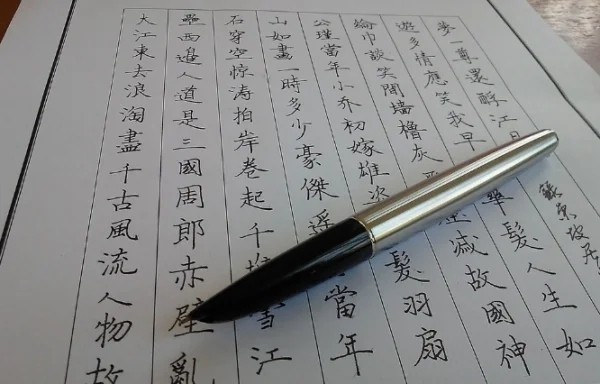 大江東去浪淘盡千古風流人物故
壘西邊人道是三國周郎赤壁亂
石穿空惊涛拍岸卷起千堆雪江
山如畫一時多少豪傑遥當年
公瑾當年小乔初嫁雄髮羽扇
綸巾談笑間墙櫓灰滅故國神
遊多情應笑我早華髮人生如
夢一尊還酹江